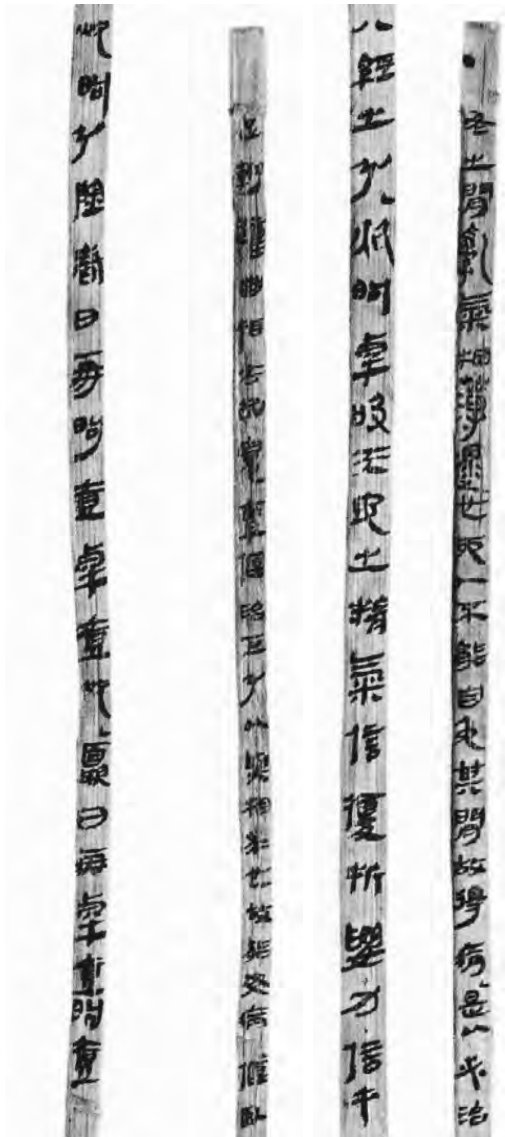 冬之間亂氣相薄遝也而人不能自免其間故得病是以必治
八經之引炊昫虖吸天地之精氣信復折要力信手
足軵踵曲指去起寬亶偃治巨引以與相求也故能毋病偃臥
炊昫引陰春日再昫壹虖壹炊夏日再虖壹昫壹